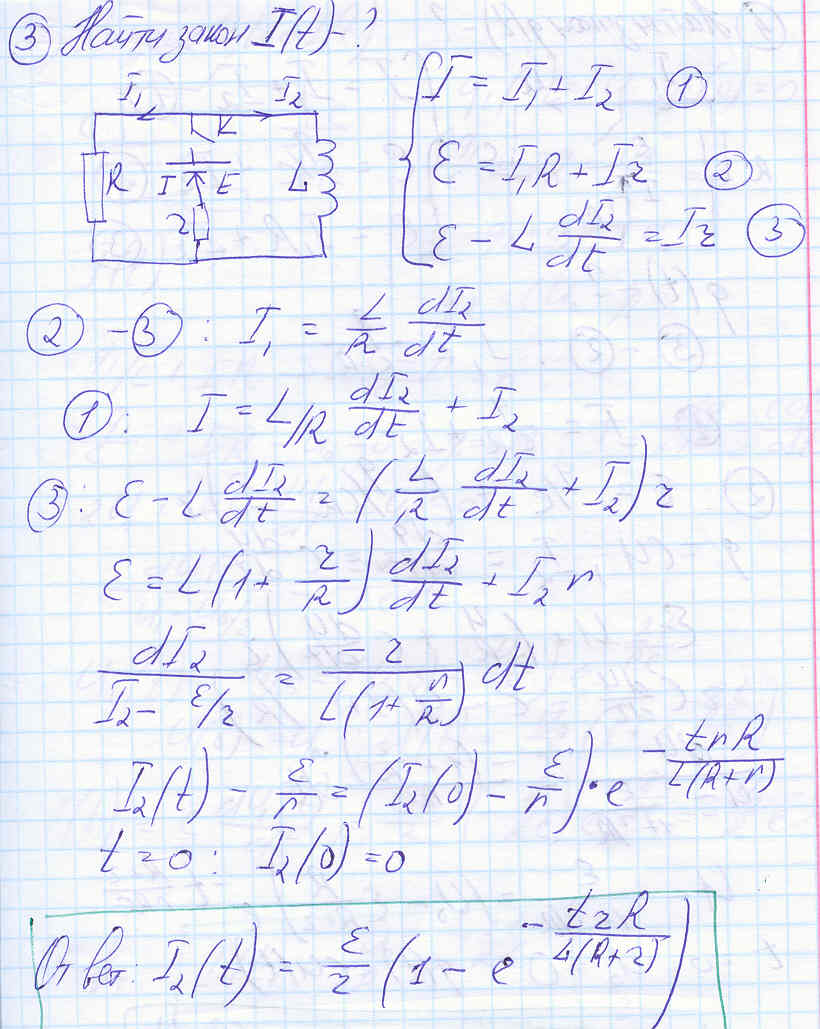 ③ Найти закон I(t)-?
I₁ I₂
K
R I ℰ L
r
I = I₁ + I₂ ①
ℰ = I₁R + Ir ②
ℰ - L dI₂/dt = Ir ③
② - ③ : I₁ = L/R dI₂/dt
① : I = L/R dI₂/dt + I₂
③ : ℰ - L dI₂/dt = (L/R dI₂/dt + I₂) r
ℰ = L(1 + r/R) dI₂/dt + I₂ r
dI₂/(I₂ - ℰ/r) = -r/(L(1 + r/R)) dt
I₂(t) - ℰ/r = (I₂(0) - ℰ/r) · e^(-trR/(L(R+r)))
t = 0 : I₂(0) = 0
Ответ: I₂(t) = ℰ/r (1 - e^(-trR/(L(R+r))))